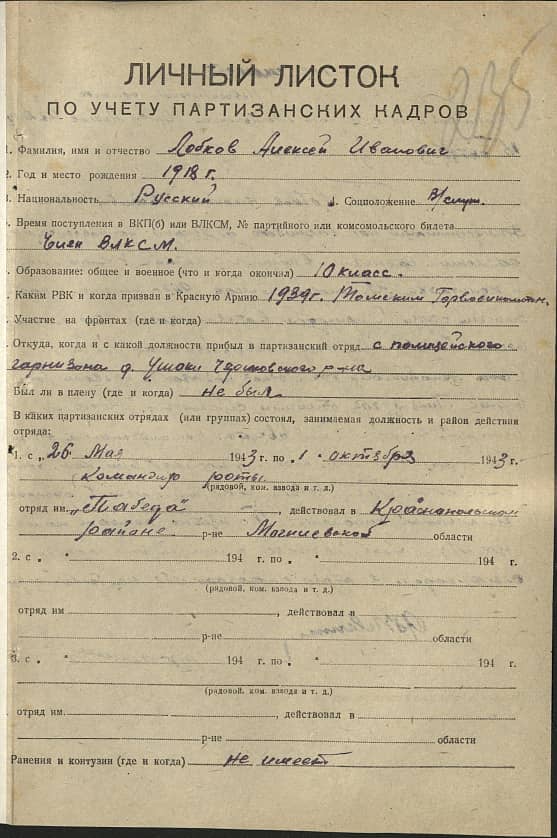 235
ЛИЧНЫЙ ЛИСТОК
ПО УЧЕТУ ПАРТИЗАНСКИХ КАДРОВ
1. Фамилия, имя и отчество Лобков Алексей Иванович
2. Год и место рождения 1918 г.
3. Национальность Русский 4. Соцположение В/служ.
Время поступления в ВКП(б) или ВЛКСМ, № партийного или комсомольского билета
Член ВЛКСМ.
Образование: общее и военное (что и когда окончил) 10 класс.
Каким РВК и когда призван в Красную Армию 1939 г. Томским Горвоенкоматом
Участие на фронтах (где и когда)
Откуда, когда и с какой должности прибыл в партизанский отряд с полицейского
гарнизона д. Ушаки Чериковского р-на
Был ли в плену (где и когда) не был
В каких партизанских отрядах (или группах) состоял, занимаемая должность и район действия
отряда:
1. с „26 Мая 1943 г. по „1 " октября 1943 г.
Командир роты
(рядовой, ком. взвода и т. д.)
отряд им. „Победа" , действовал в Краснапольском
районе р-не Могилевской области
2. с „ " 194 г. по „ " 194 г.
(рядовой, ком. взвода и т. д.)
отряд им , действовал в
р-не области
3. с „ " 194 г. по „ " 194 г.
(рядовой, ком. взвода и т. д.)
отряд им. , действовал в
р-не области
Ранения и контузии (где и когда) не имеет